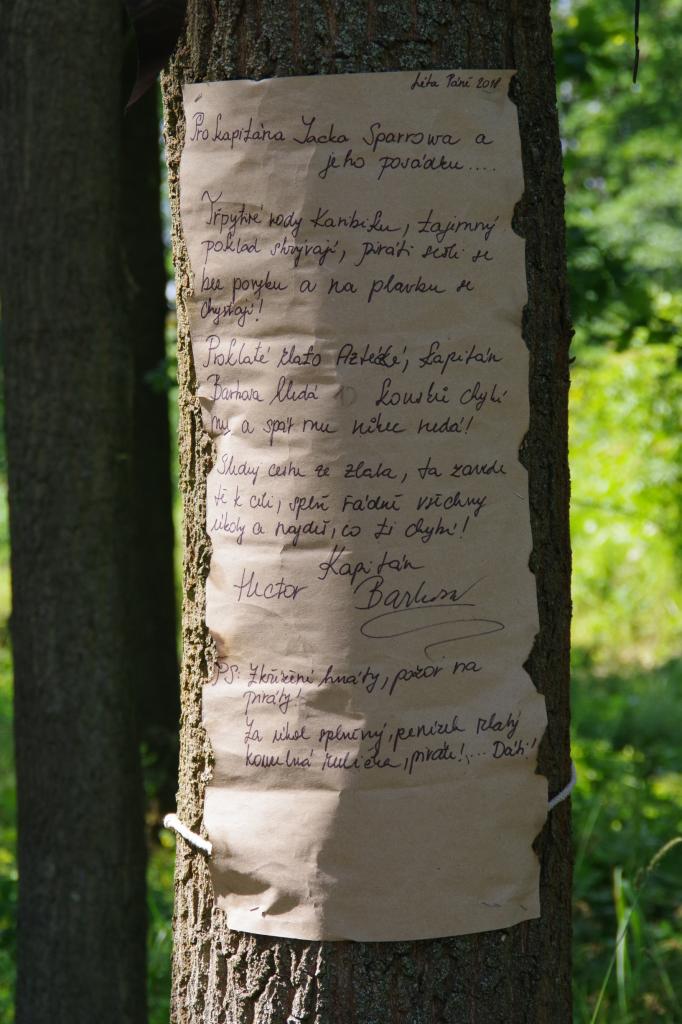 Léta Páně 2018
Pro kapitána Jacka Sparrowa a
jeho posádku....
Třpytivé vody Karibiku, tajemný
poklad skrývají, piráti sešli se
bez povyku a na plavbu se
chystají!
Prokleté zlato Aztécké, kapitán
Barbosa hledá kousků chybí
mu a spát mu nikec nedá!
Sleduj cestu ze zlata, ta zavede
tě k cíli, splň řádně všechny
úkoly a najdeš, co ti chybí!
Kapitán
Hector Barbosa
PS: Zkřížené hnáty, pozor na
piráty!
Za úkol splněný, penízek zlatý
kouzelná truhlica, piráte!... Dáti!